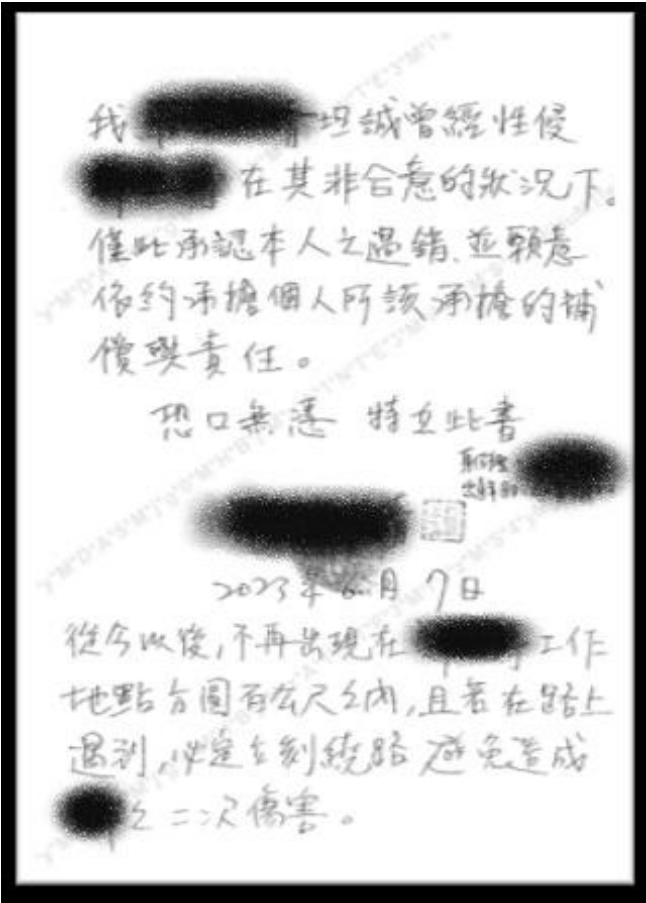 我 坦誠曾經性侵
在其非合意的狀況下。
僅此承認本人之過錯、並願意
依約承擔個人所該承擔的補
償與責任。
恐口無憑 特立此書
2023年6月7日
從今以後,不再出現在 工作
地點方圓百公尺之內,且若在路上
遇到,必定立刻繞路避免造成
之二次傷害。